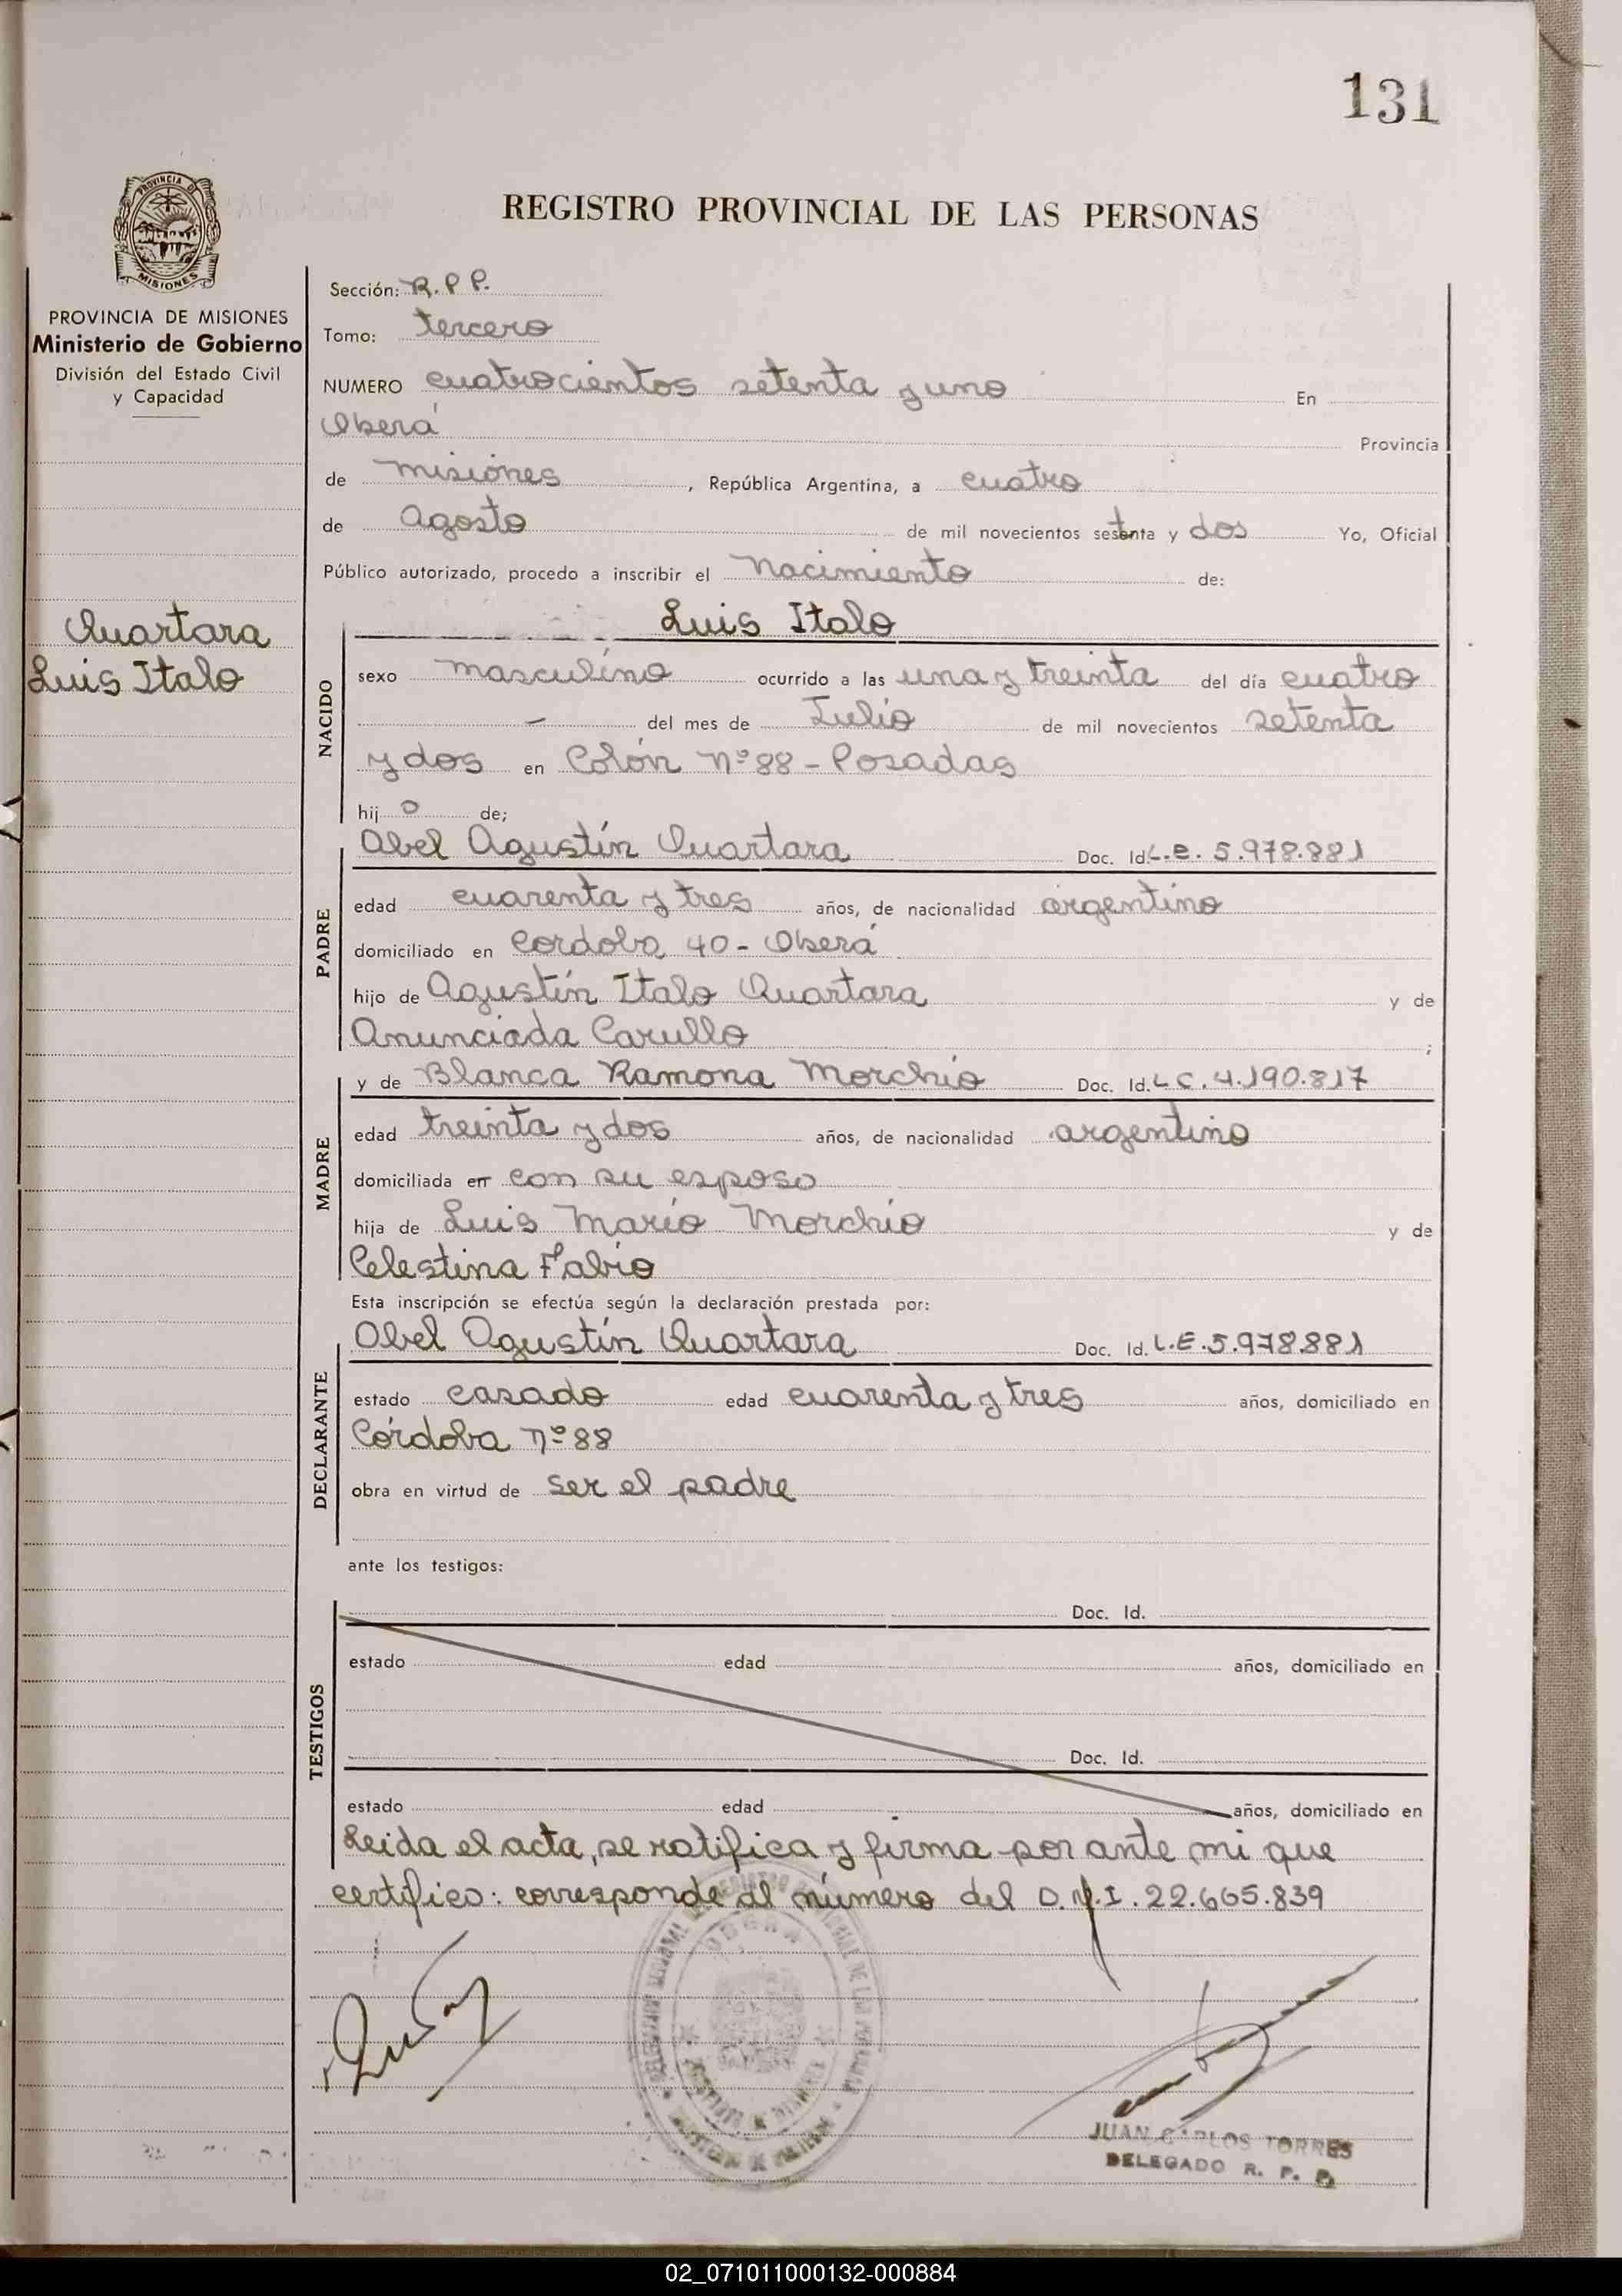 131
PROVINCIA DE
MISIONES
REGISTRO PROVINCIAL DE LAS PERSONAS
PROVINCIA DE MISIONES
Ministerio de Gobierno
División del Estado Civil
y Capacidad
Quartara
Luis Italo
Sección: R.P.P.
Tomo: tercero
NUMERO cuatrocientos setenta y uno En
Oberá Provincia
de misiones, República Argentina, a cuatro
de Agosto de mil novecientos setenta y dos Yo, Oficial
Público autorizado, procedo a inscribir el Nacimiento de:
NACIDO
Luis Italo
sexo masculino ocurrido a las una y treinta del día cuatro
— del mes de Julio de mil novecientos setenta
y dos en Colón Nº 88 - Posadas
hij o de;
PADRE
Abel Agustín Quartara Doc. Id. L.E. 5.978.881
edad cuarenta y tres años, de nacionalidad argentino
domiciliado en Cordoba 40 - Oberá
hijo de Agustín Italo Quartara y de
Anunciada Carullo ;
MADRE
y de Blanca Ramona Morchio Doc. Id. L C. 4.190.817
edad treinta y dos años, de nacionalidad argentino
domiciliada en con su esposo
hija de Luis Mario Morchio y de
Celestina Fabio
Esta inscripción se efectúa según la declaración prestada por:
DECLARANTE
Abel Agustín Quartara Doc. Id. L.E. 5.978.881
estado casado edad cuarenta y tres años, domiciliado en
Córdoba Nº 88
obra en virtud de ser el padre
ante los testigos:
TESTIGOS
Doc. Id.
estado edad años, domiciliado en
Doc. Id.
estado edad años, domiciliado en
Leida el acta, se ratifica y firma por ante mi que
certifico: corresponde al número del D.N.I. 22.665.839
OBERA
JUAN CARLOS TORRES
DELEGADO R. P. P.
02_071011000132-000884